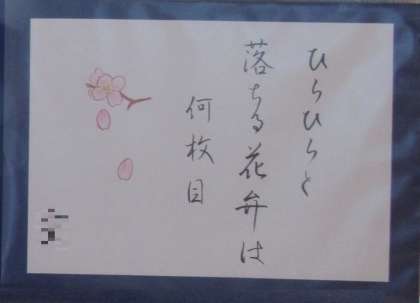 ひらひらと
落ちる花弁は
何枚目